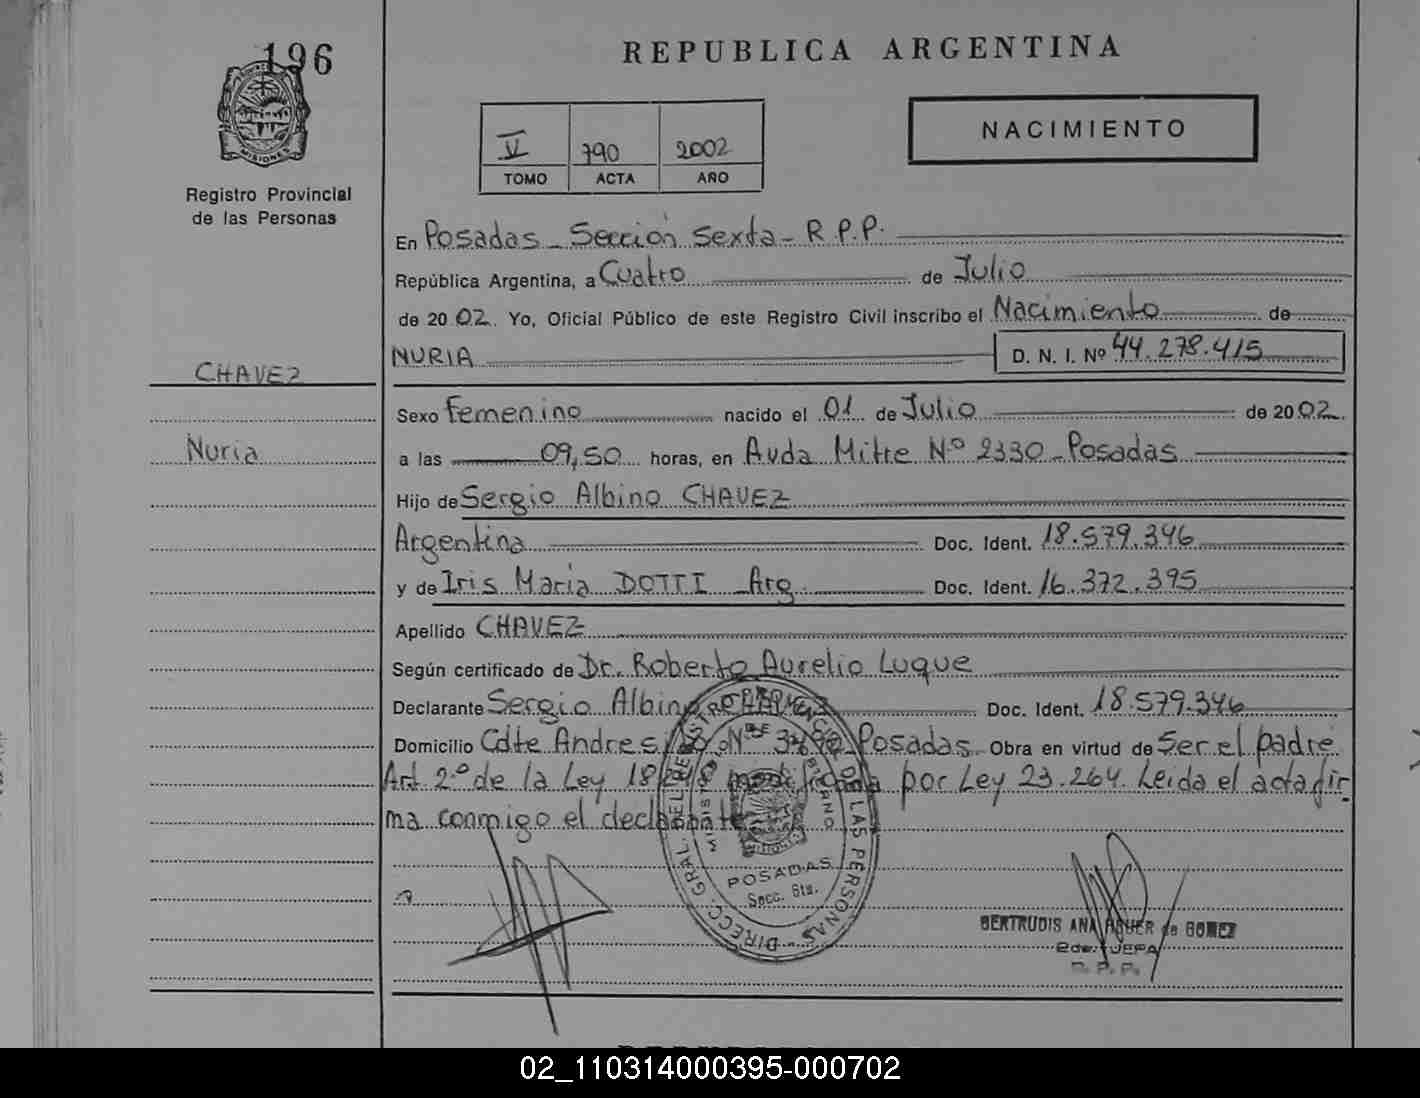 196
REPUBLICA ARGENTINA
MISIONES
Registro Provincial
de las Personas
V 790 2002
TOMO ACTA AÑO
NACIMIENTO
En Posadas - Sección Sexta - R.P.P.
República Argentina, a Cuatro de Julio
de 2002. Yo, Oficial Público de este Registro Civil inscribo el Nacimiento de
NURIA D. N. I. Nº 44.278.415
CHAVEZ
Nuria
Sexo Femenino nacido el 01 de Julio de 2002.
a las 09,50 horas, en Avda Mitre Nº 2330 - Posadas
Hijo de Sergio Albino CHAVEZ
Argentina Doc. Ident. 18.579.346
y de Iris Maria DOTTI - Arg. Doc. Ident. 16.372.395
Apellido CHAVEZ
Según certificado de Dr. Roberto Aurelio Luque
Declarante Sergio Albino CHAVEZ Doc. Ident. 18.579.346
Domicilio Cdte Andres Nº Posadas. Obra en virtud de Ser el padre
Art. 2º de la Ley por Ley 23.264. Leida el acta fir-
ma conmigo el declarante
DIRECC. GRAL. DEL REGISTRO DE LAS PERSONAS
POSADAS
Secc. 6ta.
GERTRUDIS ANA de GOMEZ
2do. JEFA
R. P. P.
02_110314000395-000702